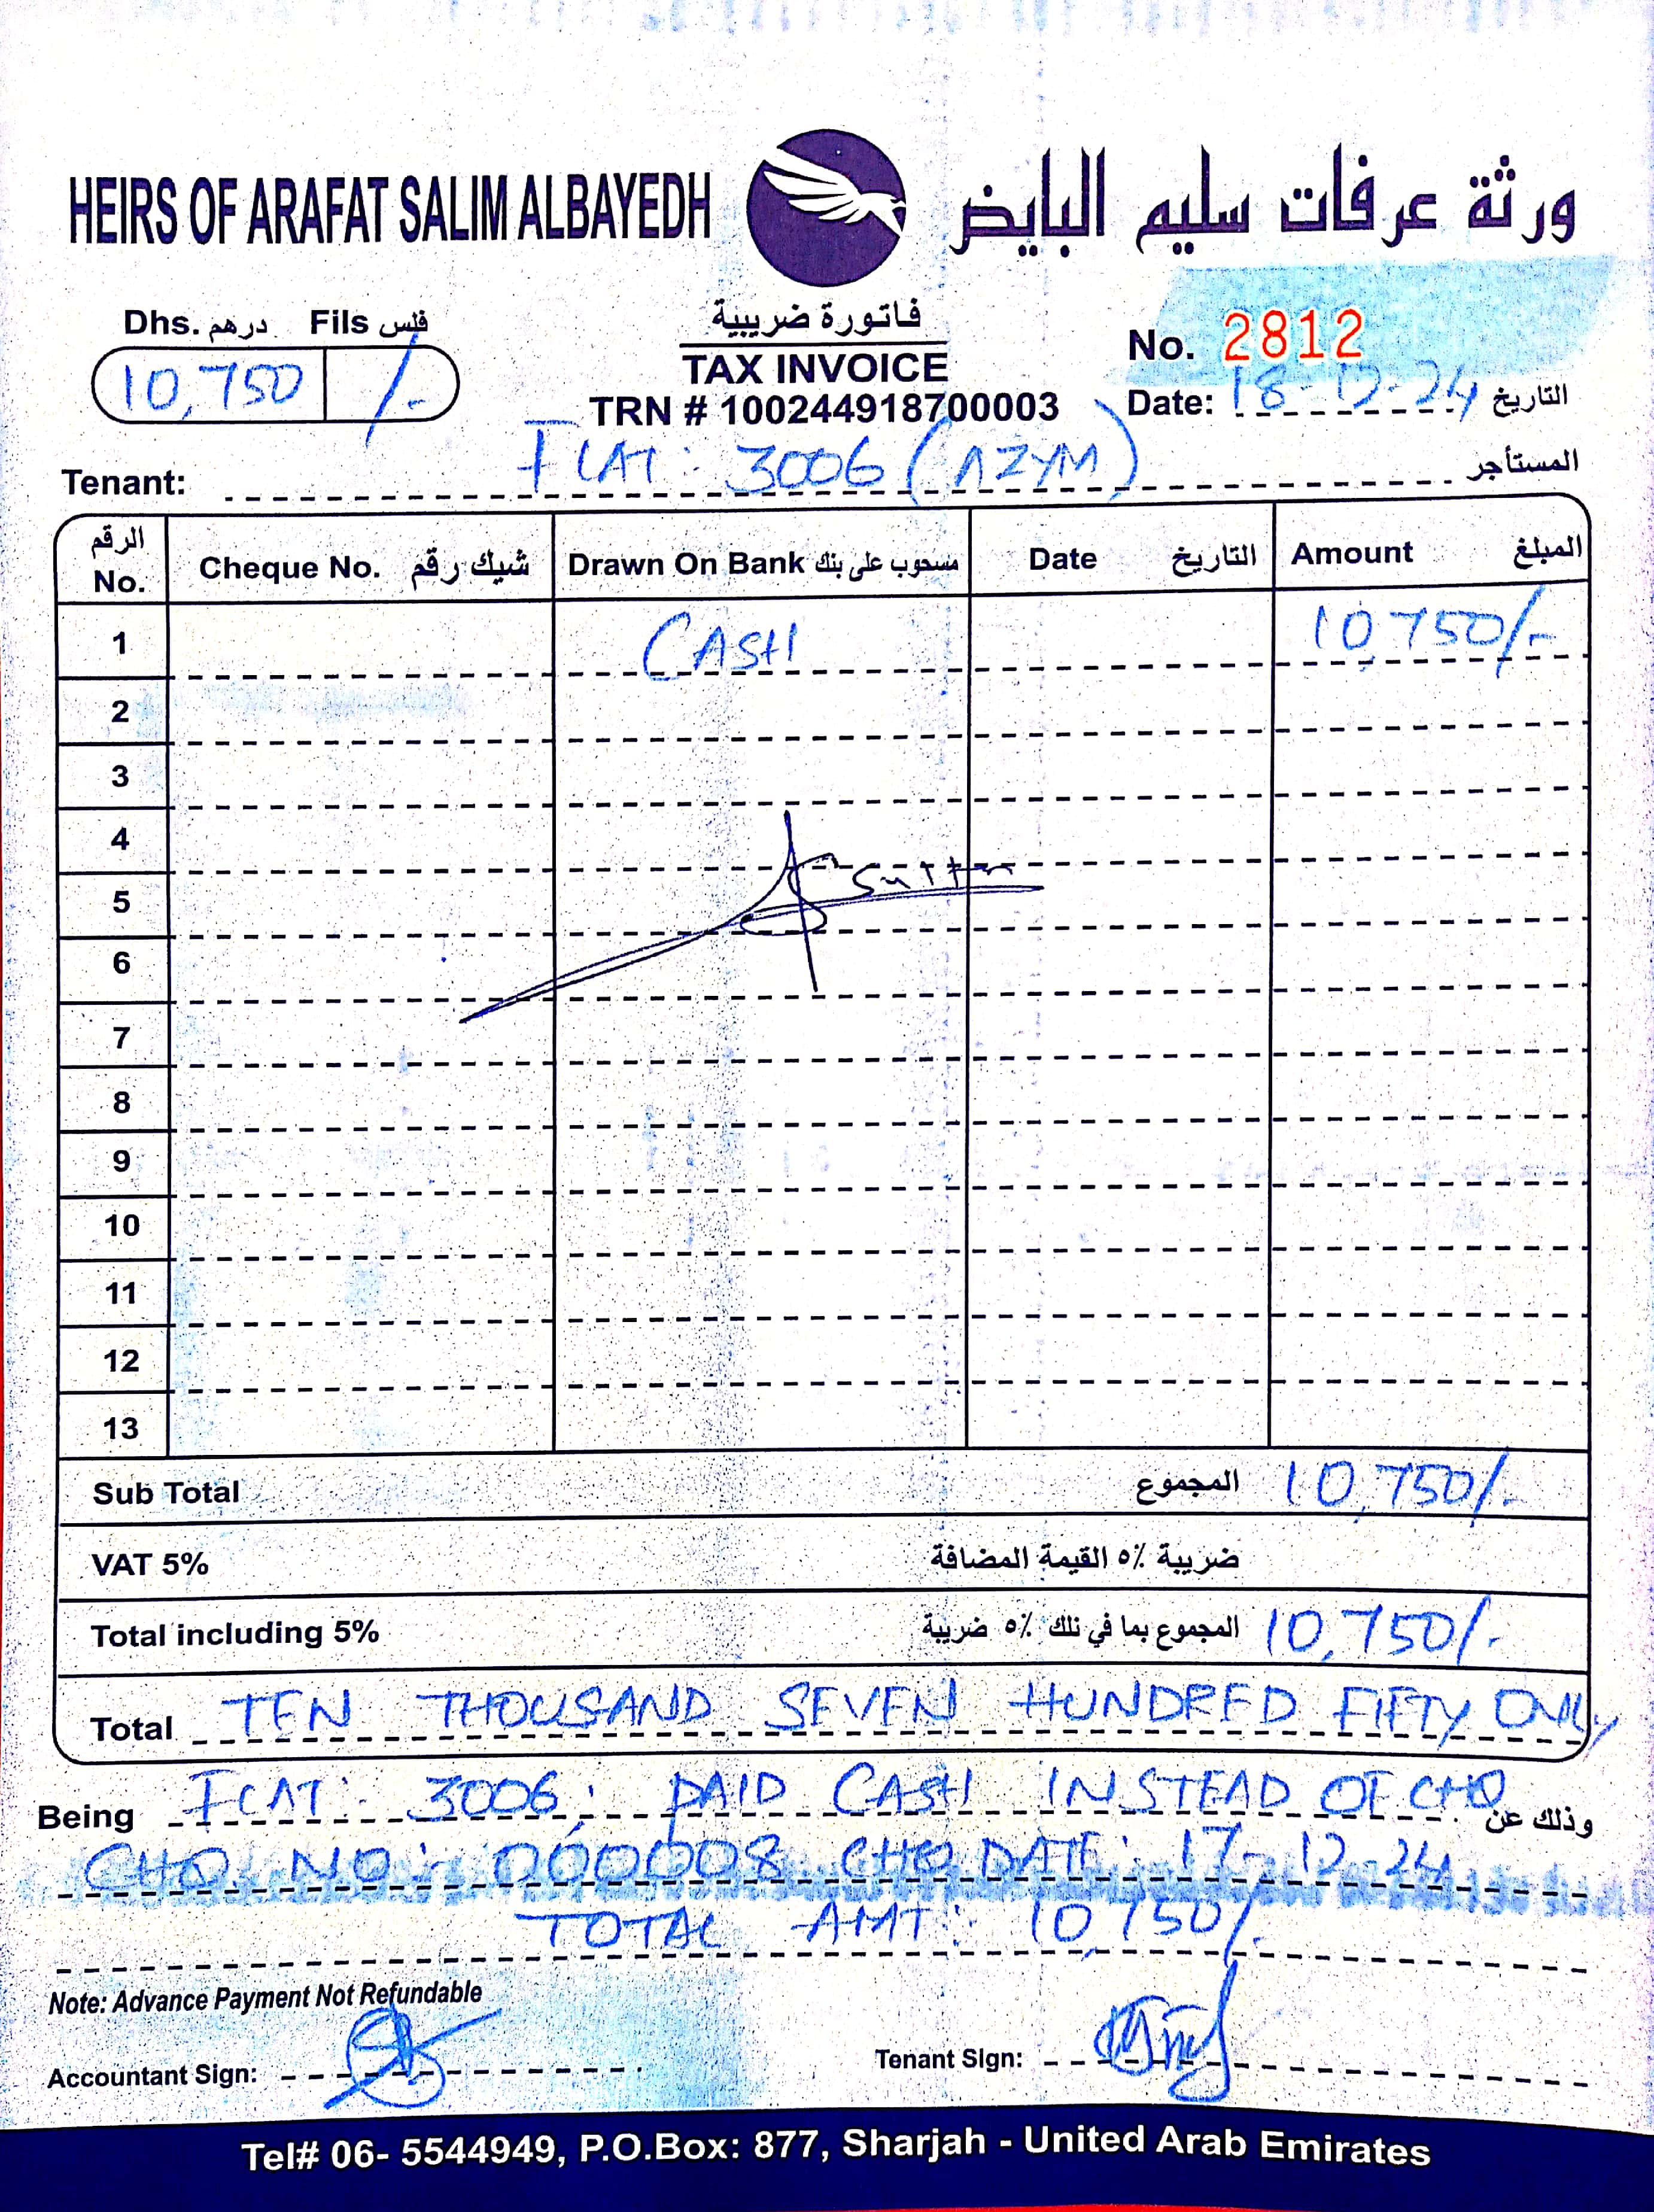 HEIRS OF ARAFAT SALIM ALBAYEDH ورثة عرفات سليم البايض
Dhs. درهم Fils فلس
10,750 /-
فاتورة ضريبية
TAX INVOICE
TRN # 100244918700003
No. 2812
Date: 18-12-24 التاريخ
Tenant: FLAT: 3006 (AZYM) المستأجر
الرقم No. Cheque No. شيك رقم Drawn On Bank مسحوب على بنك Date التاريخ Amount المبلغ
1 CASH 10,750/-
2
3
4
5
6
7
8
9
10
11
12
13
Sub Total المجموع 10,750/-
VAT 5% ضريبة ٥٪ القيمة المضافة
Total including 5% المجموع بما في ذلك ٥٪ ضريبة 10,750/-
Total TEN THOUSAND SEVEN HUNDRED FIFTY ONLY
Being FLAT: 3006; PAID CASH INSTEAD OF CHQ وذلك عن
CHQ NO: 000008 CHQ DATE: 17-12-24
TOTAL AMT: 10,750/-
Note: Advance Payment Not Refundable
Accountant Sign: Tenant Sign:
Tel# 06- 5544949, P.O.Box: 877, Sharjah - United Arab Emirates